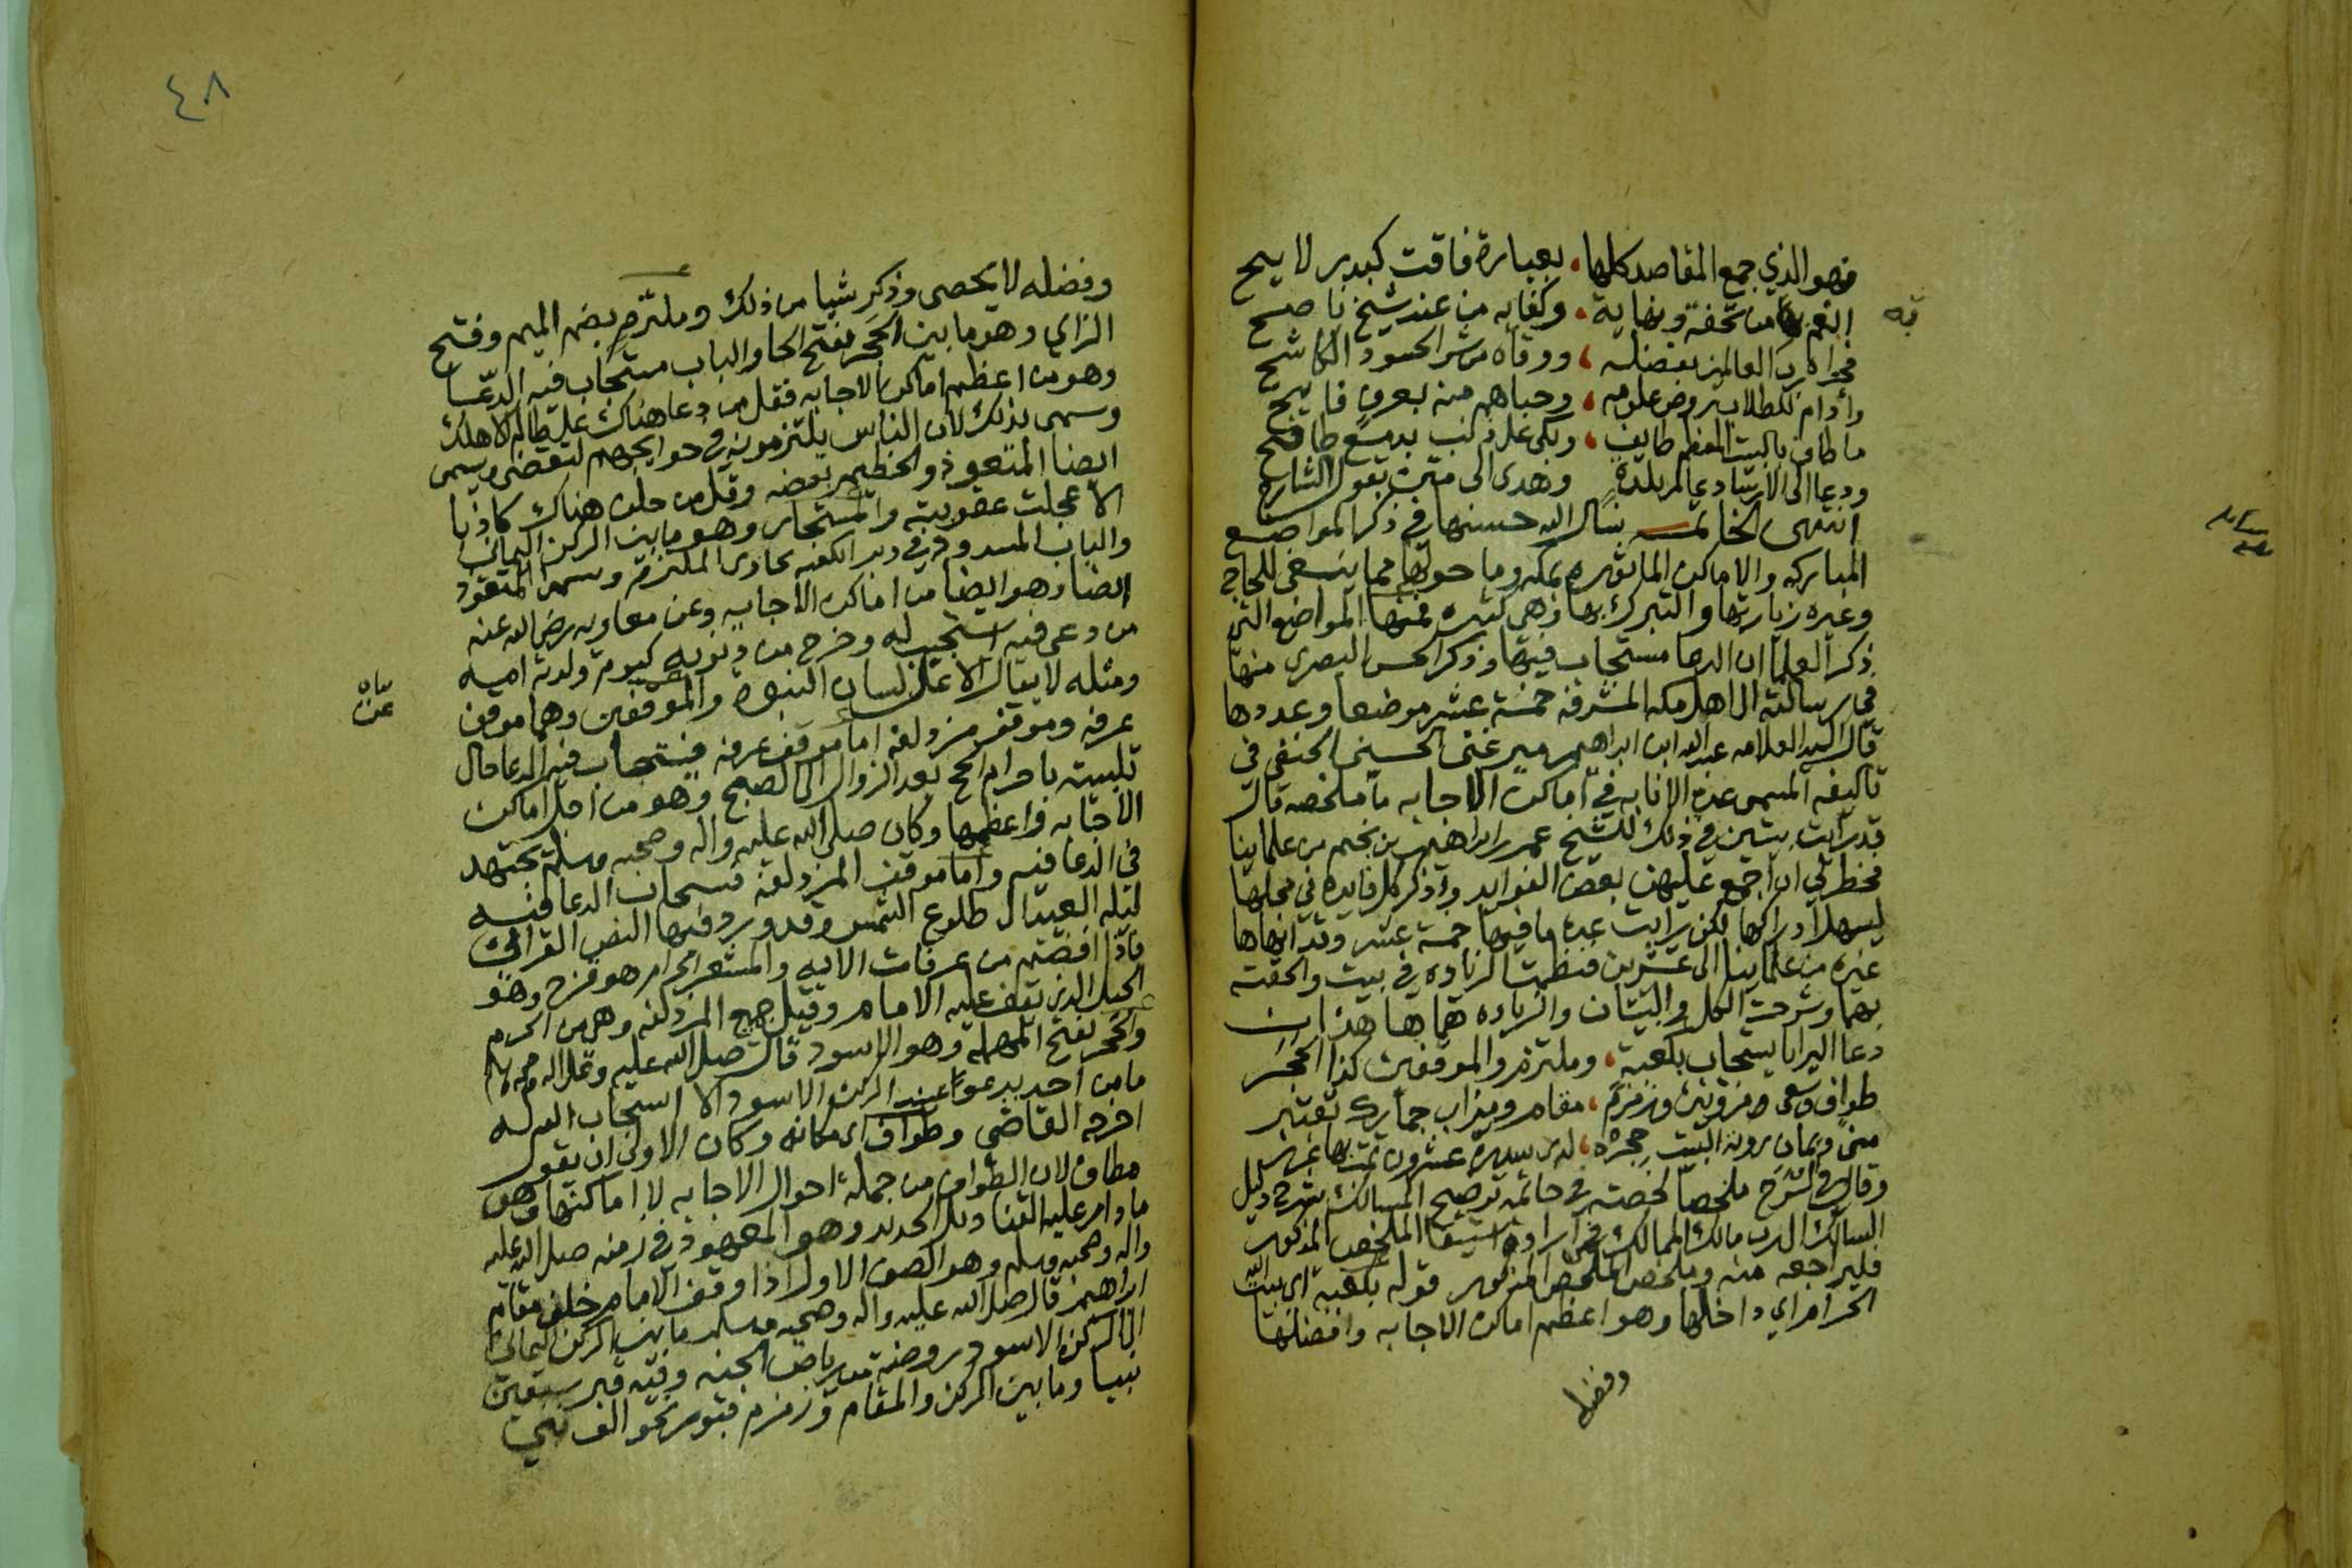 فهو الذي جمع المقاصد كلها، بعبارة فاقت كبدر لايح
انعم بها من تحفة ونهاية، وكفاية من عند شيخ ناصح
فجزاه رب العالمين بفضله، ووقاه من شر الحسود الكاشح
وأدام للطلاب روض علومه، وحباهم منه بعرف فايح
ما طاف بالبيت المعظم طايف، وبكى على ذنب بدمع طافح
ودعا الى الارشاد عالم بلدة وهدى الى متن بقول الشارح
انتهى الخاتمة نسال الله حسنها في ذكر المواضع
المباركه والاماكن الماثوره بمكه وما حولها مما ينبغي للحاج
وغيره زيارتها والتبرك بها وهي كثيره فمنها المواضع التي
ذكر العلما ان الدعا مستجاب فيها وذكر الحسن البصري منها
في رسالته الى اهل مكه المشرفه خمسة عشر موضعا وعددها
قال السيد العلامه عبد الله ابن ابراهيم مير غني الحسيني الحنفي في
تاليفه المسمى عدة الانابه في اماكن الاجابه ما ملخصه قال
قد رايت بيتين في ذلك للشيخ عمر ابن ابراهيم بن نجيم من علماينا
فخطر لي ان اجمع عليهن بعض الفوايد واذكر كل فايده في محلها
ليسهل ادراكها لكن رايت عدة ما فيها خمسة عشر وقد انهاها
غيره من علماينا الى عشرين فنظمت الزياده في بيت والحقته
بهما وشرحت الكل والبيتان والزياده هما هذان
دعا البرايا يستجاب بكعبة، وملتزم والموقفين كذا الحجر
طواف وسعى مروتين وزمزم، مقام وميزاب جمارك تعتبر
منى ويمان روية البيت حجره، لدى سدرة عشرون تمت بها غرر
وقال في الشرح ملخصا لخصته في خاتمة توضيح المسالك شرح دليل
السالك الى رب مالك الممالك فمن اراده استيفا الملخص المذكور
فليراجعه منه وملخص الملخص المذكور قوله بكعبة اي بيت الله
الحرام اي داخلها وهو اعظم اماكن الاجابه وافضلها
وفضله
٤٨
وفضله لا يحصى وذكر شيا من ذلك وملتزم بضم الميم وفتح
الزاي وهو ما بين الحجر بفتح الحا والباب مستجاب فيه الدعا
وهو من اعظم اماكن الاجابه فقل من دعا هناك على ظالم الا هلك
وسمى بذلك لان الناس يلتزمونه في حوايجهم لتقضى ويسمى
ايضا المتعوذ والحطيم بعضه وقل من حلف هناك كاذبا
الا عجلت عقوبته والمستجار وهو ما بين الركن اليماني
والباب المسدود في دبر الكعبه يحاذي الملتزم ويسمى المتعوذ
ايضا وهو ايضا من اماكن الاجابه وعن معاويه رضي الله عنه
من دعى فيه استجيب له وخرج من ذنوبه كيوم ولدته اميه
ومثله لا يقال الا على لسان النبوه والموقفين وهما موقف
عرفه وموقف مزدلفه اما موقف عرفه فيستجاب فيه الدعا حال
تلبيته باحرام الحج بعد الزوال الى الصبح وهو من اجل اماكن
الاجابه واعظمها وكان صلى الله عليه واله وصحبه وسلم يجتهد
في الدعا فيه واما موقف المزدلفه فيستجاب الدعا فيه
ليله العيد الى طلوع الشمس وقد ورد فيها النص القراني
فاذا افضتم من عرفات الايه والمشعر الحرام هو قزح وهو
الجبل الذي يقف عليه الامام وقيل جميع المزدلفه وهي من الحرم
والحجر بفتح المهمله وهو الاسود قال صلى الله عليه وعلى اله وصحبه وسلم
ما من احد يدعو عند الركن الاسود الا استجاب الله له
اخرجه القاضي وطواف اي مكانه وكان الاولى ان يقول
مطاف لان الطواف من جملة احوال الاجابه لا اماكنها وهو
ما دام عليه القنا ديل الحديد وهو المعهود في زمنه صلى الله عليه
واله وصحبه وسلم وهو الصف الاول اذا وقف الامام خلف مقام
ابراهيم قال صلى الله عليه واله وصحبه وسلم ما بين الركن اليماني
الى الركن الاسود روضة من رياض الجنه وفيه قبر سبعين
نبيا وما بين الركن والمقام وزمزم قبور نحو الف نبي